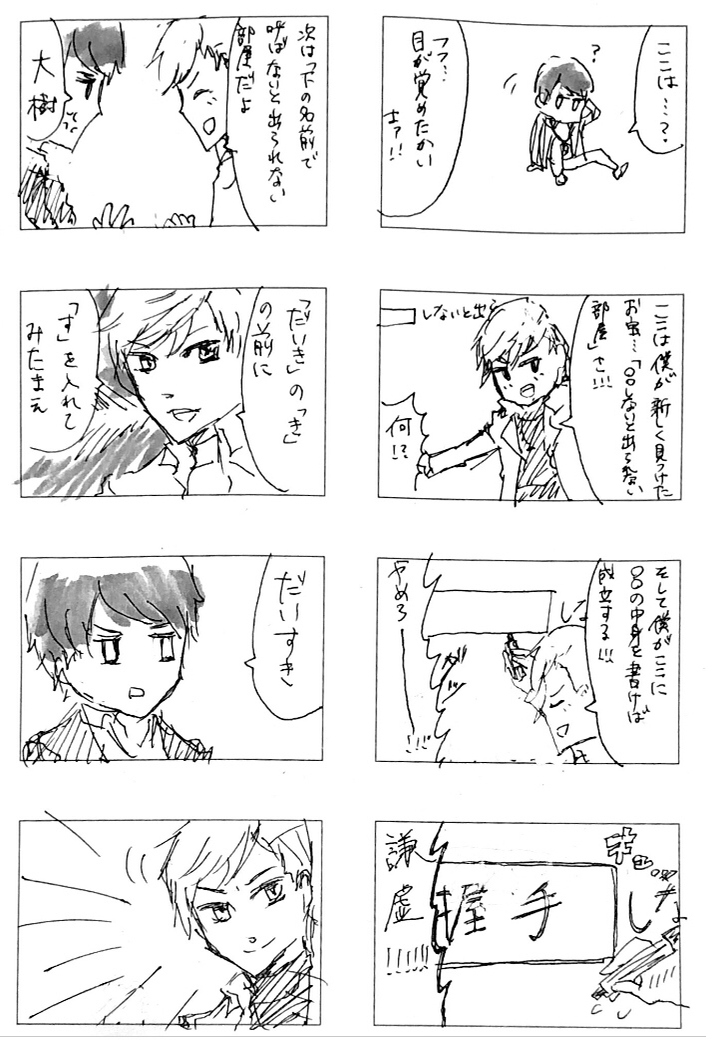 ここは…?
?
フフ…
目が覚めたかい
ここは僕が新しく見つけた
お宝…「○○しないと出られない
部屋」さ!!!
しないと出
何!?
そして僕がここに
○○の中身を書けば
成立する!!!
やめろー
!!!
手握
謙虚
!!!!!!
次は下の名前で
呼ばないと出られない
部屋だよ
大樹
「だいき」の「き」
の前に
「す」を入れて
みたまえ
だいすき